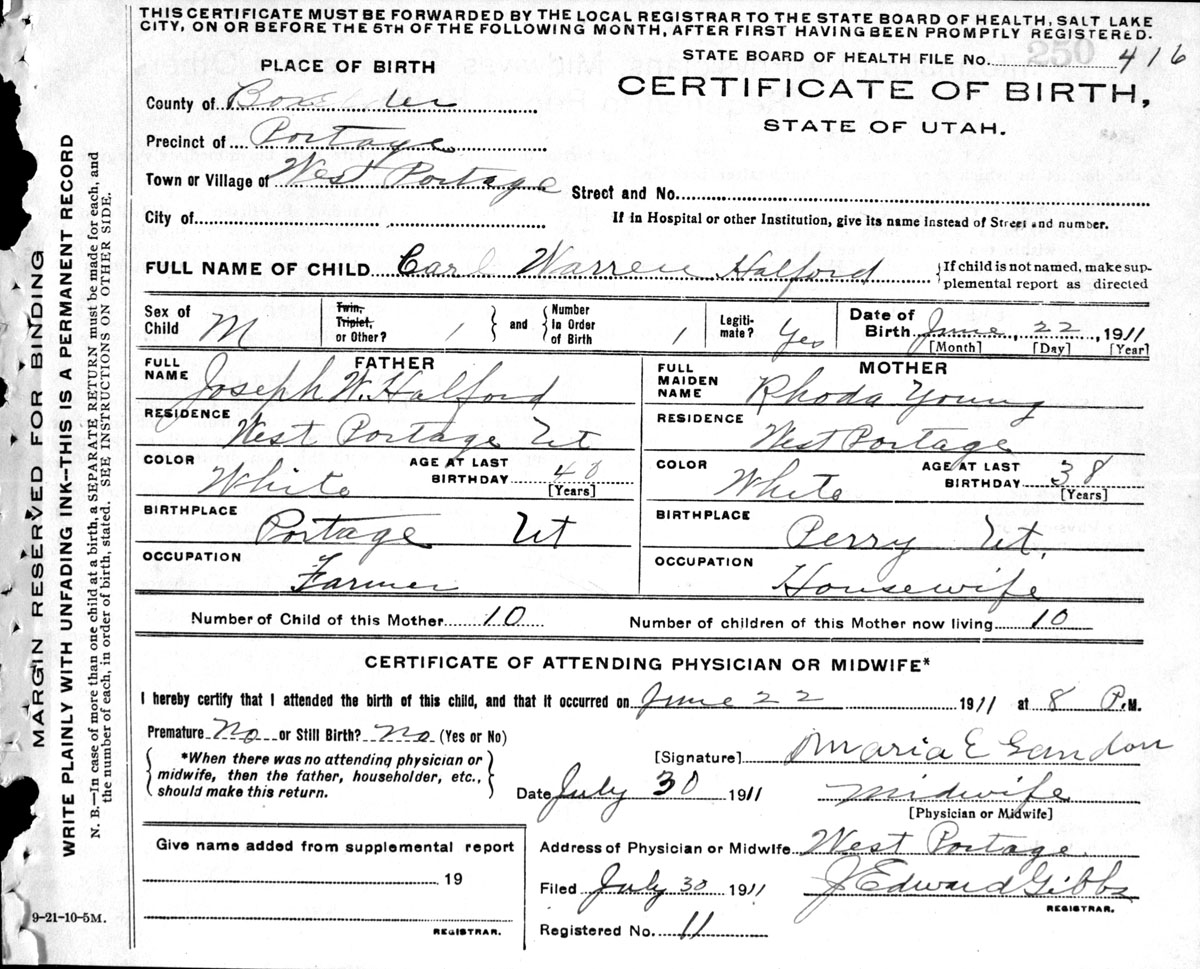 THIS CERTIFICATE MUST BE FORWARDED BY THE LOCAL REGISTRAR TO THE STATE BOARD OF HEALTH, SALT LAKE
CITY, ON OR BEFORE THE 5TH OF THE FOLLOWING MONTH, AFTER FIRST HAVING BEEN PROMPTLY REGISTERED.
250
STATE BOARD OF HEALTH FILE No. 416
PLACE OF BIRTH
CERTIFICATE OF BIRTH,
STATE OF UTAH.
County of Box elder
Precinct of Portage
Town or Village of West Portage
Street and No.
City of
If in Hospital or other Institution, give its name instead of Street and number.
FULL NAME OF CHILD Carl Warren Halford
{If child is not named, make sup-
plemental report as directed
Sex of Child M
Twin, Triplet, or Other? 1
and
Number In Order of Birth 1
Legiti-mate? Yes
Date of Birth June, 22, 1911
[Month] [Day] [Year]
FATHER
FULL NAME Joseph W. Halford
RESIDENCE West Portage Ut
COLOR White
AGE AT LAST BIRTHDAY 40
[Years]
BIRTHPLACE Portage Ut
OCCUPATION Farmer
MOTHER
FULL MAIDEN NAME Rhoda Young
RESIDENCE West Portage
COLOR White
AGE AT LAST BIRTHDAY 38
[Years]
BIRTHPLACE Perry Ut.
OCCUPATION Housewife
Number of Child of this Mother 10
Number of children of this Mother now living 10
CERTIFICATE OF ATTENDING PHYSICIAN OR MIDWIFE*
I hereby certify that I attended the birth of this child, and that it occurred on June 22 1911 at 8 P.M.
Premature No or Still Birth? No (Yes or No)
*When there was no attending physician or
midwife, then the father, householder, etc.,
should make this return.
[Signature] Maria E Gandon
Date July 30 1911
Midwife
[Physician or Midwife]
Give name added from supplemental report
19
REGISTRAR.
Address of Physician or Midwife West Portage
Filed July 30 1911
J Edward Gibbs
REGISTRAR.
Registered No. 11
9-21-10-5M.
MARGIN RESERVED FOR BINDING
WRITE PLAINLY WITH UNFADING INK—THIS IS A PERMANENT RECORD
N. B.—In case of more than one child at a birth, a SEPARATE RETURN must be made for each, and
the number of each, in order of birth, stated. SEE INSTRUCTIONS ON OTHER SIDE.